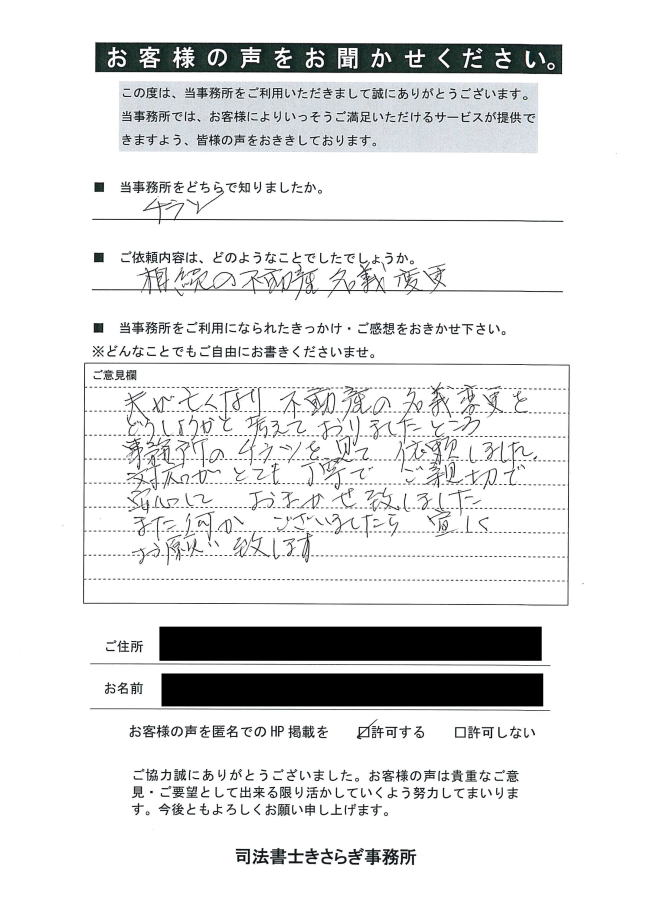 お客様の声をお聞かせください。
この度は、当事務所をご利用いただきまして誠にありがとうございます。
当事務所では、お客様によりいっそうご満足いただけるサービスが提供で
きますよう、皆様の声をおききしております。
■ 当事務所をどちらで知りましたか。
チラシ
■ ご依頼内容は、どのようなことでしたでしょうか。
相続の不動産名義変更
■ 当事務所をご利用になられたきっかけ・ご感想をおきかせ下さい。
※どんなことでもご自由にお書きくださいませ。
ご意見欄
夫が亡くなり 不動産の名義変更を
どうしようかと考えておりましたところ
事務所のチラシを見て 依頼しました。
対応がとても丁寧で ご親切で
安心して おまかせ致しました
また何か ございましたら 宜しく
お願い致します
ご住所
お名前
お客様の声を匿名でのHP掲載を ☑許可する □許可しない
ご協力誠にありがとうございました。お客様の声は貴重なご意
見・ご要望として出来る限り活かしていくよう努力してまいりま
す。今後ともよろしくお願い申し上げます。
司法書士きさらぎ事務所